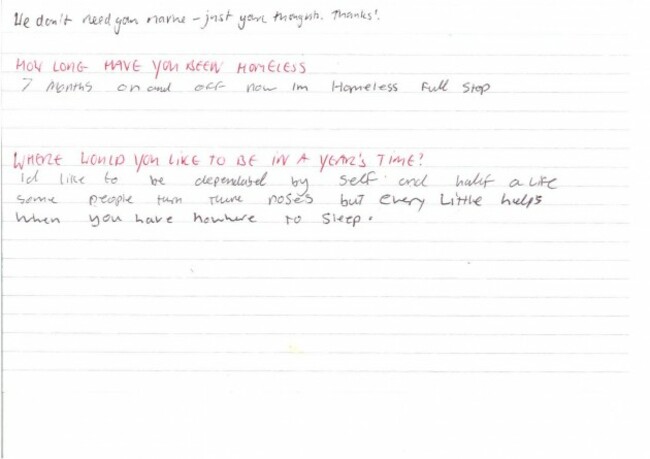 We don't need your name - just your thoughts. Thanks!
HOW LONG HAVE YOU BEEN HOMELESS
7 Months on and off now Im Homeless Full Stop
WHERE WOULD YOU LIKE TO BE IN A YEAR'S TIME?
Id like to be dependabel by self and half a Life
some people turn there noses but every Little helps
When you have nowhere to Sleep.